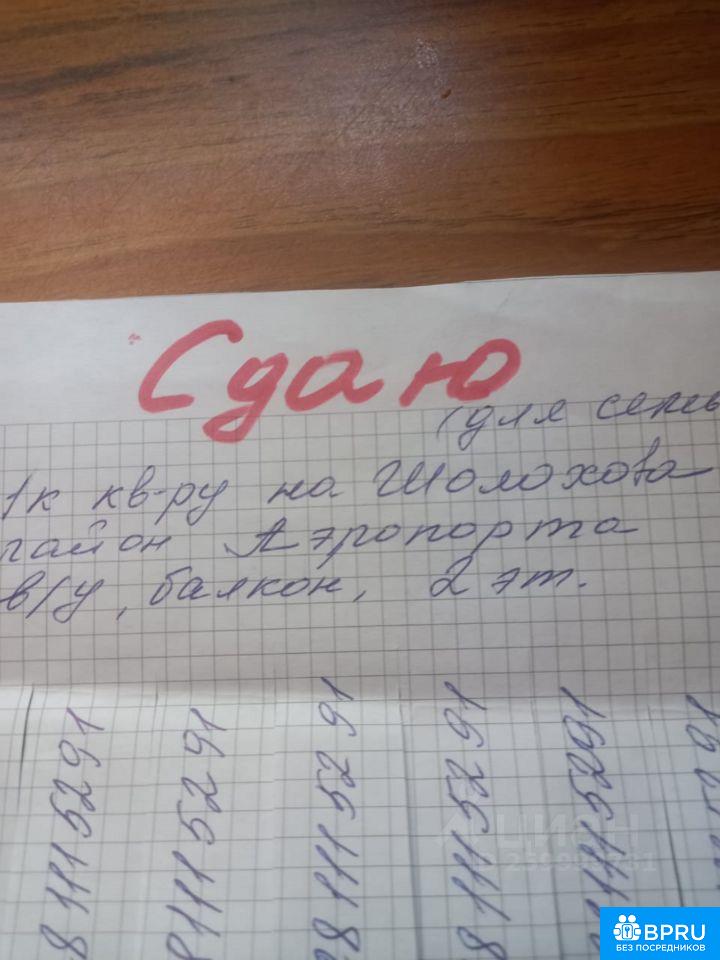 Сдаю
(для семьи
1к кв-ру на Шолохова
район Аэропорта
в/у, балкон, 2 эт.
8 111 52 91
8 111 52 91
8 111 52 91
8 111 52 91
111 52 91
ЦИАН
BPRU
БЕЗ ПОСРЕДНИКОВ